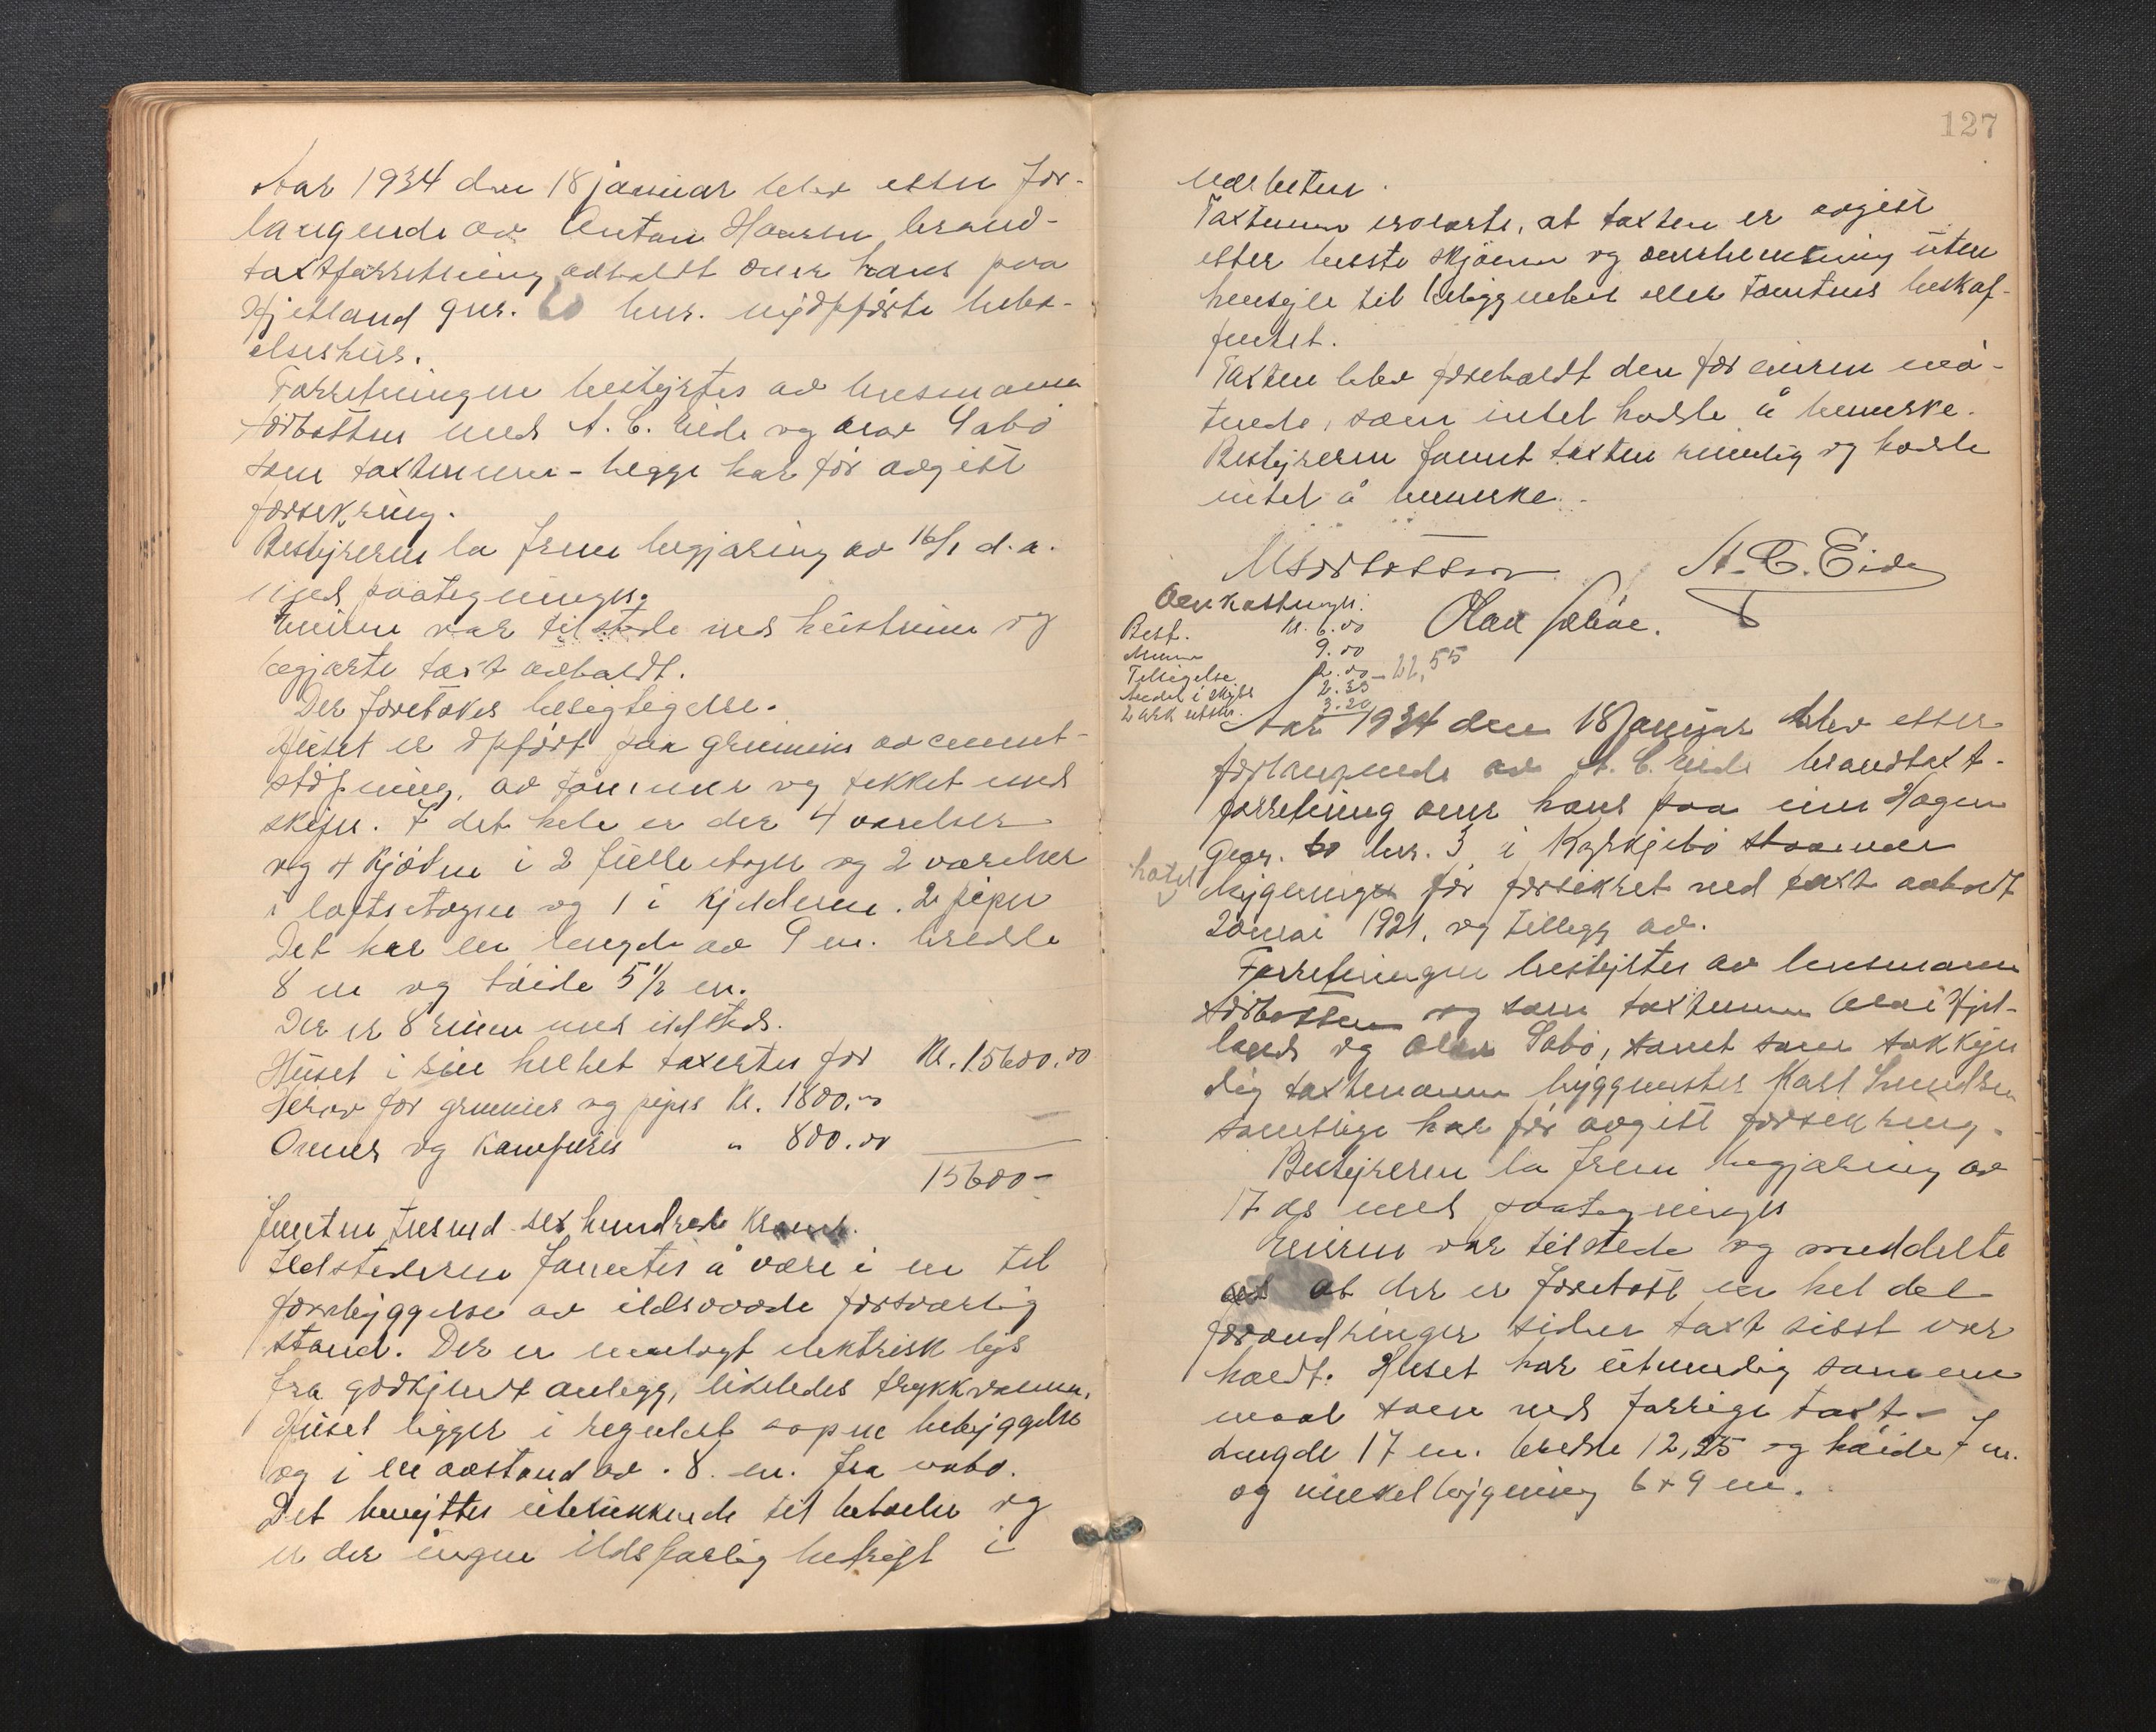 Aar 1934 den 18 januar blev etter for-
langende av Anton Hansen brand-
taxtforretning avholdt over hans paa
Hjetland gnr. 60 bnr. nyopførte bebo-
elseshus.
Forretningen bestyrtes av lensmann
Nordbotten med A. C. Eide og Olav Sabø
som taxtmenn - begge har før avgitt
forsikring.
Bestyreren la frem begjæring av 16/1 d.a.
med paategninger.
Eieren var tilstede ved hustruen og
begjærte taxt avholdt.
Der foretokes besigtigelse.
Huset er opført paa grunmur av cement-
støpning, av tømmer og tekket med
skifer. I det hele er der 4 værelser
og 1 kjøkken i 2 fulle etager og 2 værelser
i loftsetagen og 1 i kjelderen. 2 piper
Det har en lengde av 9 m. bredde
8 m og høide 5 1/2 m.
Der er 8 rum med ildsted.
Huset i sin helhet taxertes for Kr. 15600.00
Herav for grunmur og piper Kr. 1800.00
Ovner og komfurer " 800.00
15600 -
femten tusend sex hundrede kroner.
Ildstederne fantes å være i en til
forebyggelse av ildsvaade forsvarlig
stand. Der er innlagt elektrisk lys
fra godkjent anlegg, likeledes trykkvann.
Huset ligger i regulert aapne bebyggelse
og i en avstand av 8 m. fra nabo.
Det benyttes utelukkende til beboelse og
er der ingen ildsfarlig bedrift i
127
nærheten.
Taxtmenn erklærte, at taxten er avgitt
efter beste skjønn og overbevisning uten
hensyn til beliggenhet eller tomtens beskaf-
fenhet.
Taxten blev foreholdt den for eieren mø-
tende, som intet hadde å bemerke.
Bestyreren fannt taxten rimelig og hadde
intet å bemerke.
A. C. Eide
Olav Sabøe.
Omkostninger:
Best. Kr. 6.00
Menn 9.00
Tilsigelse 2.00 - 22,55
Andel i skyss 2.35
2 ark utskr. 3.20
Aar 1934 den 18 januar blev etter
forlangende av A. C. Eide brandtaxt-
forretning over hans paa sin Hagen
Gnr. 60 bnr. 3 i Kyrkjebø staaende
hotel
bygninger før forsikret ved taxt avholdt
20 mai 1921, og tillegg av.
Forretningen bestyrtes av lensmann
Nordbotten og som taxtmenn Hjet-
land og Olav Sabø, samt som sakkyn
dig taxtmann byggmester Karl
samtlige har før avgitt forsikring.
Bestyreren la frem begjæring av
17 ds med paategninger
Eieren var tilstede og meddelte
at der er foretatt en hel del
forandringer siden taxt sisst var
holdt. Huset har utvendig samme
maal som ved forrige taxt -
Lengde 17 m. bredde 12,25 og høide 7 m.
og vinkelbygning 6 x 9 m.